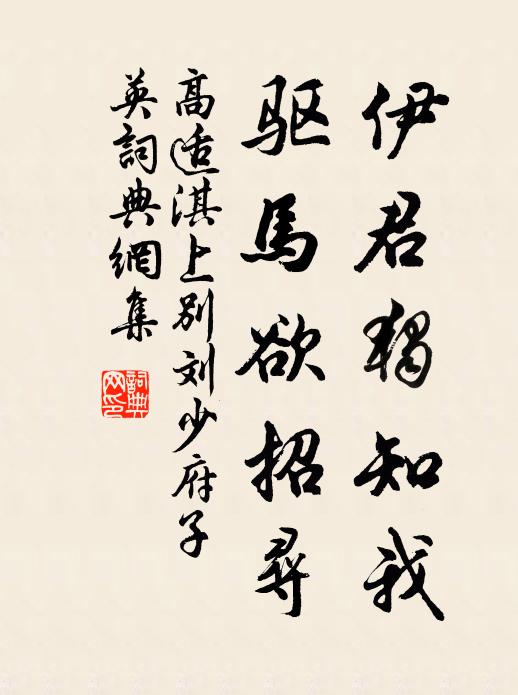 伊君獨知我
驱馬欲招尋
高适淇上别刘少府子
英詞典網集
詞典
网印